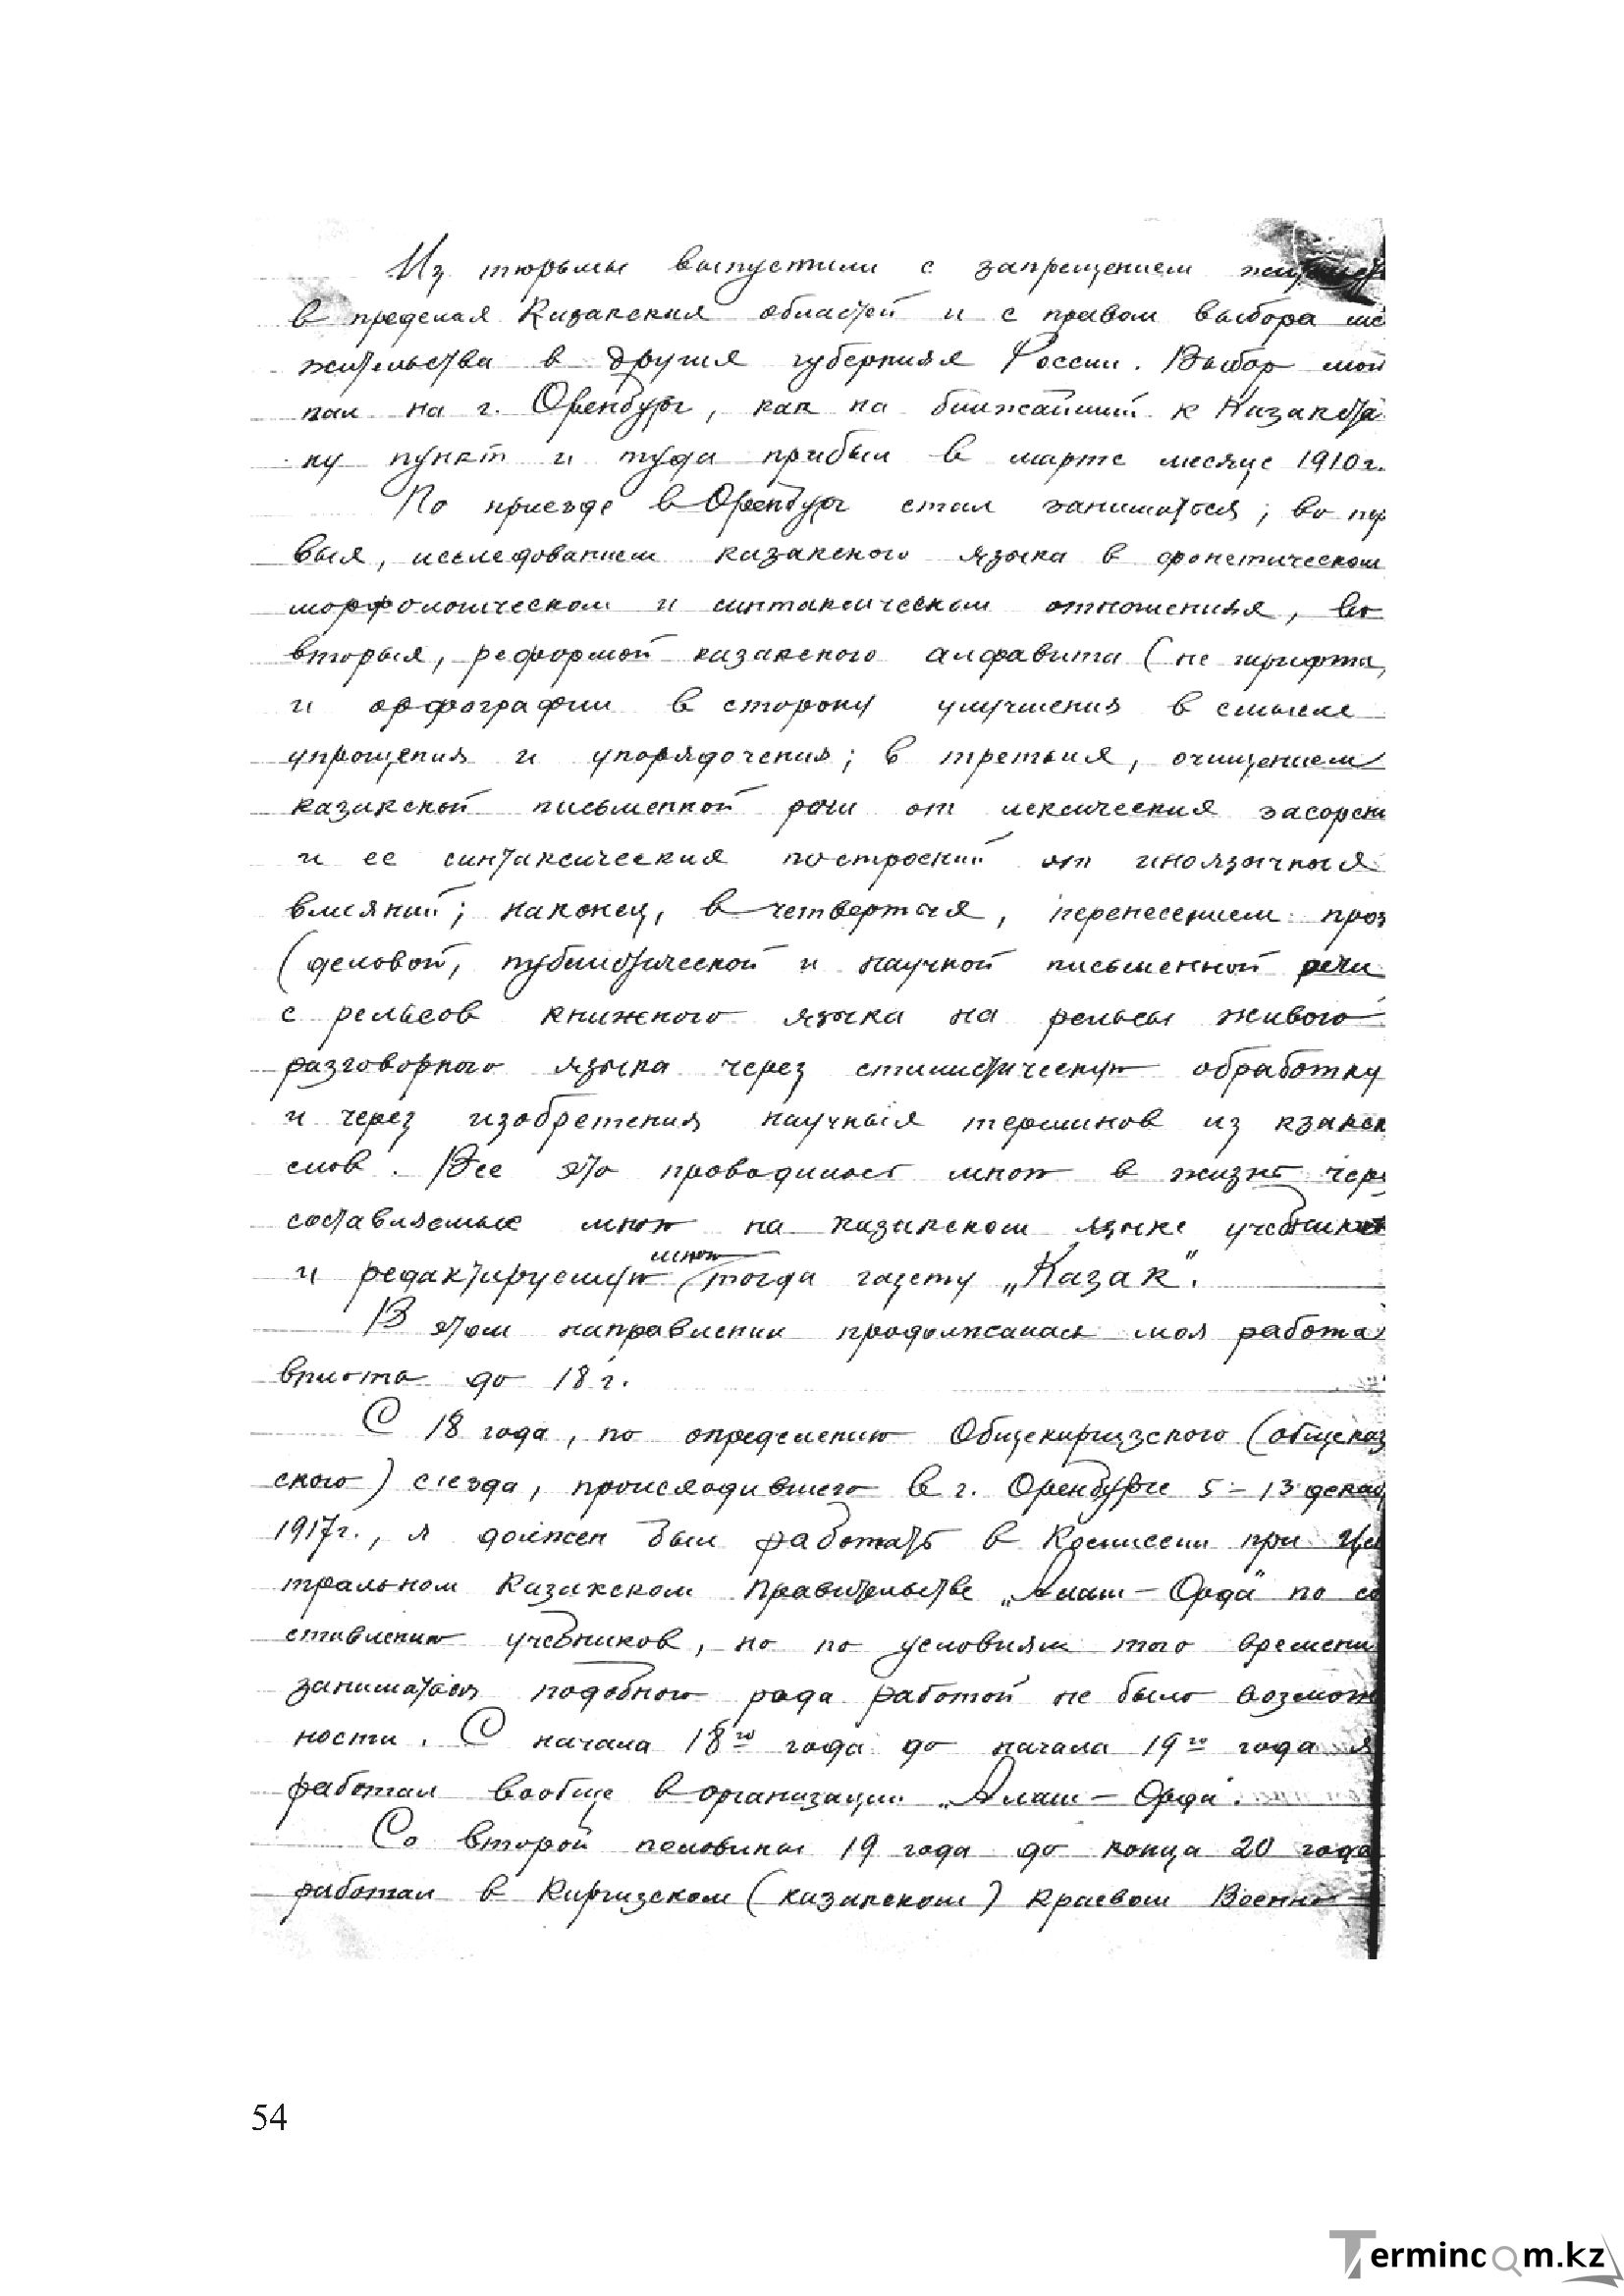 Из тюрьмы выпустили с запрещением
в пределах Казакских областей и с правом выбора ме
жительства в других губерниях России. Выбор мой
пал на г. Оренбург, как на ближайший к Казакста
ну пункт и туда прибыл в марте месяце 1910 г.
По приезде в Оренбург стал заниматься; во пер
вых, исследованием казакского языка в фонетическом
морфологическом и синтаксическом отношениях, во
вторых, реформой казакского алфавита (не шрифта,
и орфографии в сторону улучшения в смысле
упрощения и упорядочения; в третьих, очищением
казакской письменной речи от лексических засорен
и ее синтаксических построений от иноязычных
влияний; наконец, в четвертых, перенесением проз
(деловой, публистической и научной письменной речи
с рельсов книжного языка на рельсы живого
разговорного языка через стилистическую обработку
и через изобретения научных терминов из кзакск
слов. Все это проводилось мною в жизнь чере
составляемые мною на казакском языке учебники
и редактируемую мною тогда газету „Казак".
В этом направлении продолжалась моя работа
вплоть до 18 г.
С 18 года, по определению Общекиргизского (общеказ
ского) съезда, происходившего в г. Оренбурге 5–13 декаб
1917 г., я должен был работать в Комиссии при Цен
тральном Казакском Правительстве „Алаш–Орда" по со
ставлению учебников, но по условиям того времени
заниматься подобного рода работой не было возмож
ности. С начала 18го года до начала 19го года я
работал вообще в организации „Алаш–Орда".
Со второй половины 19 года до конца 20 года
работал в Киргизском (казакском) Краевом Военно-
54
Termincom.kz